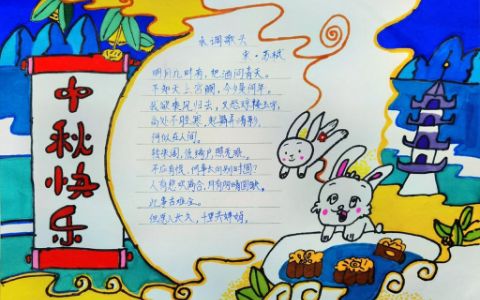 中秋快乐
水调歌头
宋·苏轼
明月几时有,把酒问青天。
不知天上宫阙,今夕是何年。
我欲乘风归去,又恐琼楼玉宇,
高处不胜寒,起舞弄清影,
何似在人间。
转朱阁,低绮户照无眠。
不应有恨,何事长向别时圆?
人有悲欢离合,月有阴晴圆缺,
此事古难全。
但愿人长久,千里共婵娟。